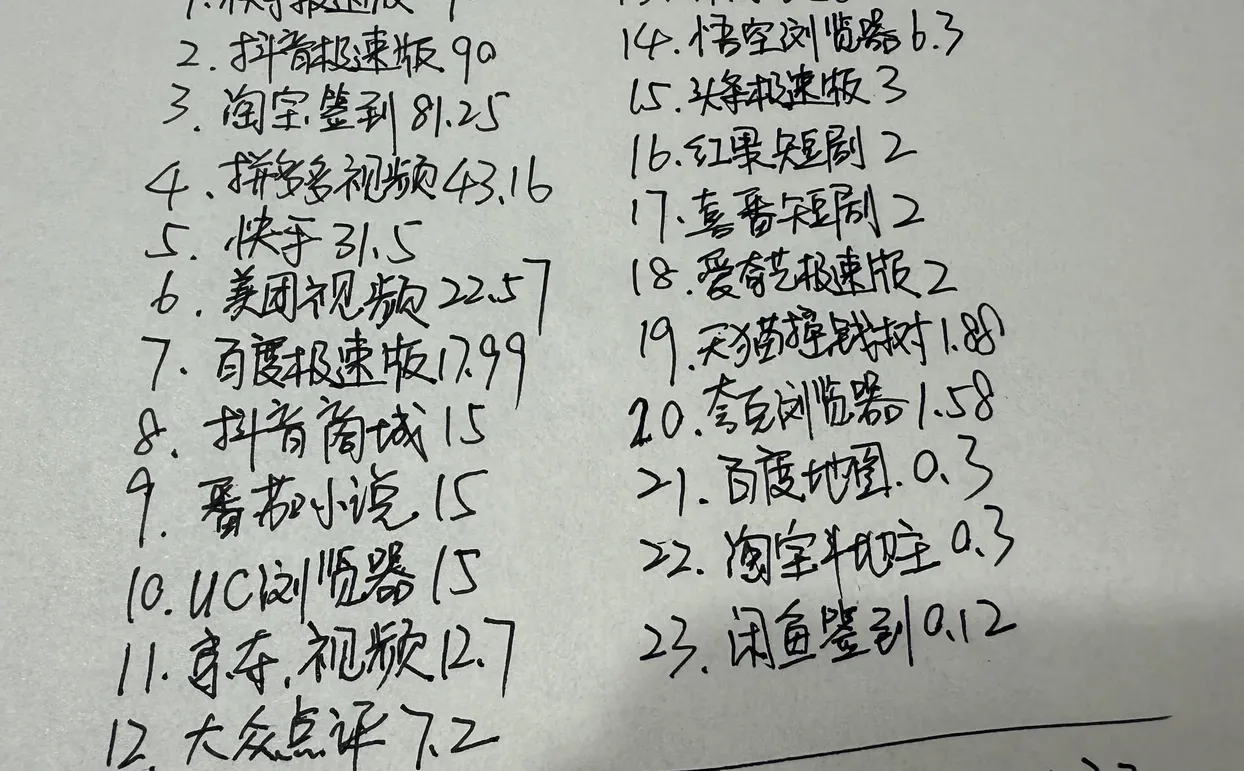 2. 抖音极速版 90
3. 淘宝签到 81.25
4. 拼多多视频 43.16
5. 快手 31.5
6. 美团视频 22.57
7. 百度极速版 17.99
8. 抖音商城 15
9. 番茄小说 15
10. UC浏览器 15
11. 京东.视频 12.7
12. 大众点评 7.2
14. 悟空浏览器 6.3
15. 头条极速版 3
16. 红果短剧 2
17. 喜番短剧 2
18. 爱奇艺极速版 2
19. 天猫摇钱树 1.88
20. 夸克浏览器 1.58
21. 百度地图. 0.3
22. 淘宝斗地主 0.3
23. 闲鱼签到 0.12